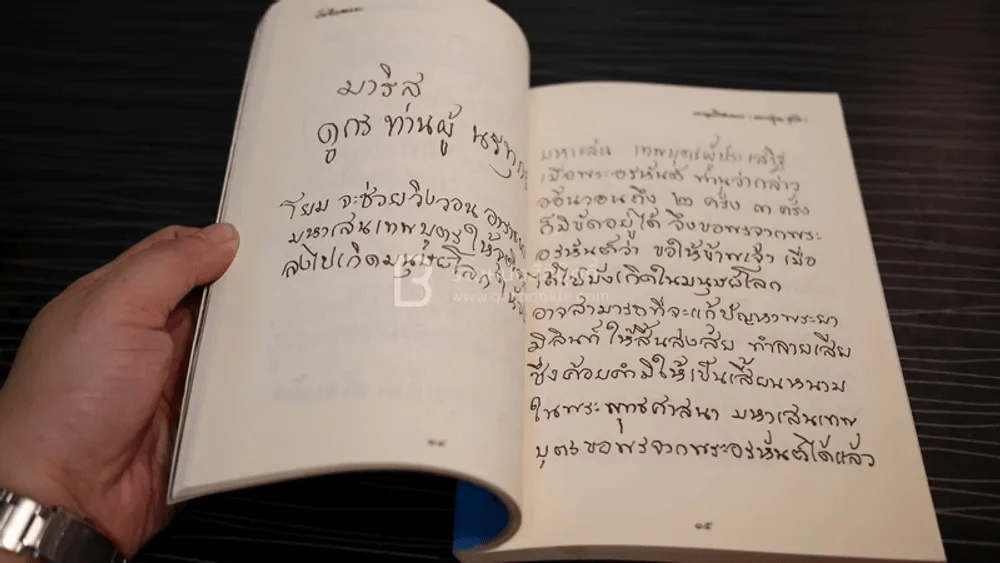 มาริส
ดูกร ท่านผู้
โยม จะช่วยวิงวอน
มหาเสนเทพบุตรให้จุติ
ลงไปเกิดมนุษย์โลก
๑๔
มหาเสน เทพบุตรผู้ประเสริฐ
เมื่อพระอรหันต์ ท่านว่ากล่าว
อ้อนวอนถึง ๒ ครั้ง ๓ ครั้ง
ก็มิขัดอยู่ได้ จึงขอพรจากพระ
อรหันต์ว่า ขอให้ข้าพเจ้า เมื่อ
ได้ไปบังเกิดในมนุษย์โลก
อาจสามารถที่จะแก้ปัญหาพระยา
มิลินท์ ให้สิ้นสงสัย ทำลายเสีย
ซึ่งถ้อยคำมิให้เป็นเสี้ยนหนาม
ในพระพุทธศาสนา มหาเสนเทพ
บุตรขอพรจากพระอรหันต์ได้แล้ว
๑๕